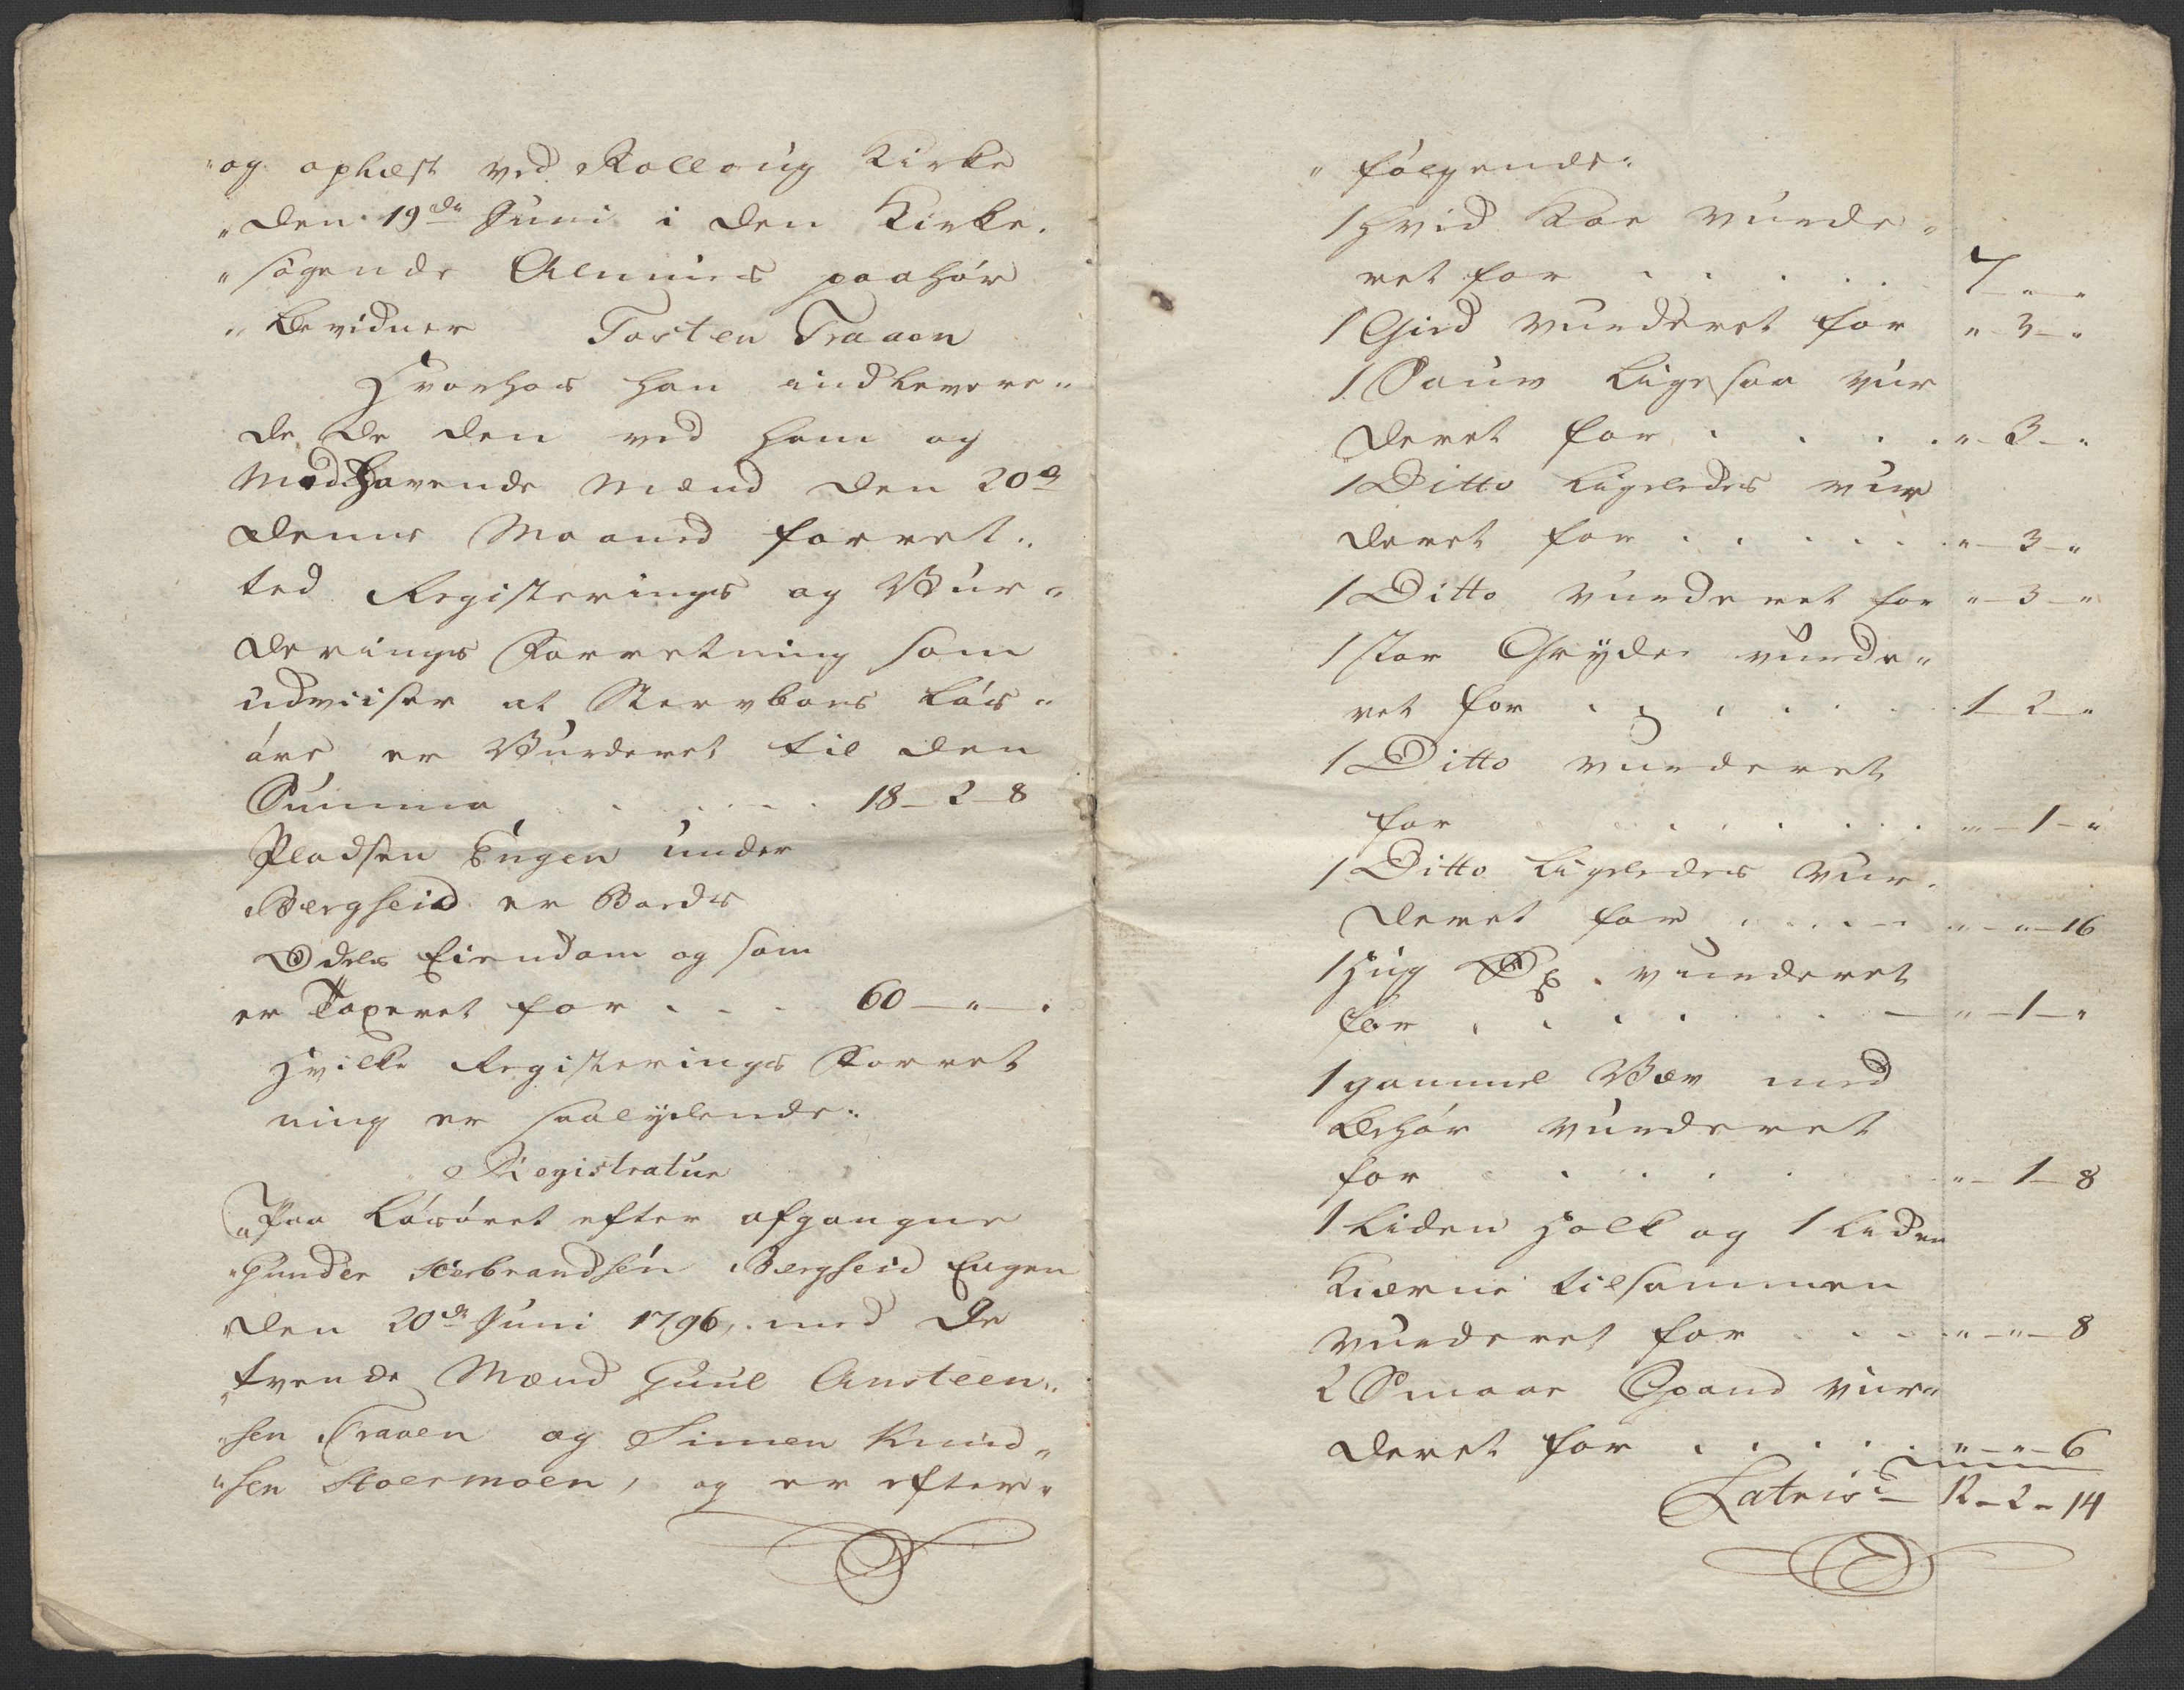 "og oplæst ved Rolloug Kirke
"den 19de Juni i den Kirke-
"søgende Almues paahør
"bevidner Tosten Traaen
Hvorhos han indlevere"
de den ved ham og
Medhavende Mænd den 20de
denne Maaned forret"
ted Registerings og Vur"
derings Forretning som
udviiser at Stervboes Løs"
øre er Vurderet til den
Summa . . . . 18-2-8
Pladsen Engen under
Bergseid er Boedes
Odels Eiendom og som
er Taxeret for . . . 60-"-"
Hvilke Registerings Forret
ning er saalydende:
Registratur
"Paa Løsøret efter afgangne
"Gunder Herbrandsen Bergseid Engen
"den 20de Juni 1796, med de
"tvende Mænd Juul Ansteen"
"sen Traaen og Simen Knud"
"sen Stoermoen, og er efter"
"følgende:
1 hvid Koe vurde"
ret for . . . . . 7-"-"
1 Gied vurderet for "-3-"
1 Sauv ligesaa vur
deret for . . . . "-3-"
1 Ditto ligeledes vur
deret for . . . . . "-3-"
1 Ditto vurderet for "-3-"
1 stor Gryde vurde"
ret for . . . . . 1-2-"
1 Ditto vurderet
for . . . . . . "-1-"
1 Ditto ligeledes vur-
deret for . . . . "-"-16
1 Hug Øx vurderet
for . . . . . "-1-"
1 gammel Væv med
behør vurderet
for . . . . "-1-8
1 liden Holk og 1 liden
Kierne tilsammen
vurderet for . . . "-"-8
2 Smaae Spand vur"
deret for . . . . . "-"-6
Lateris - 12-2-14